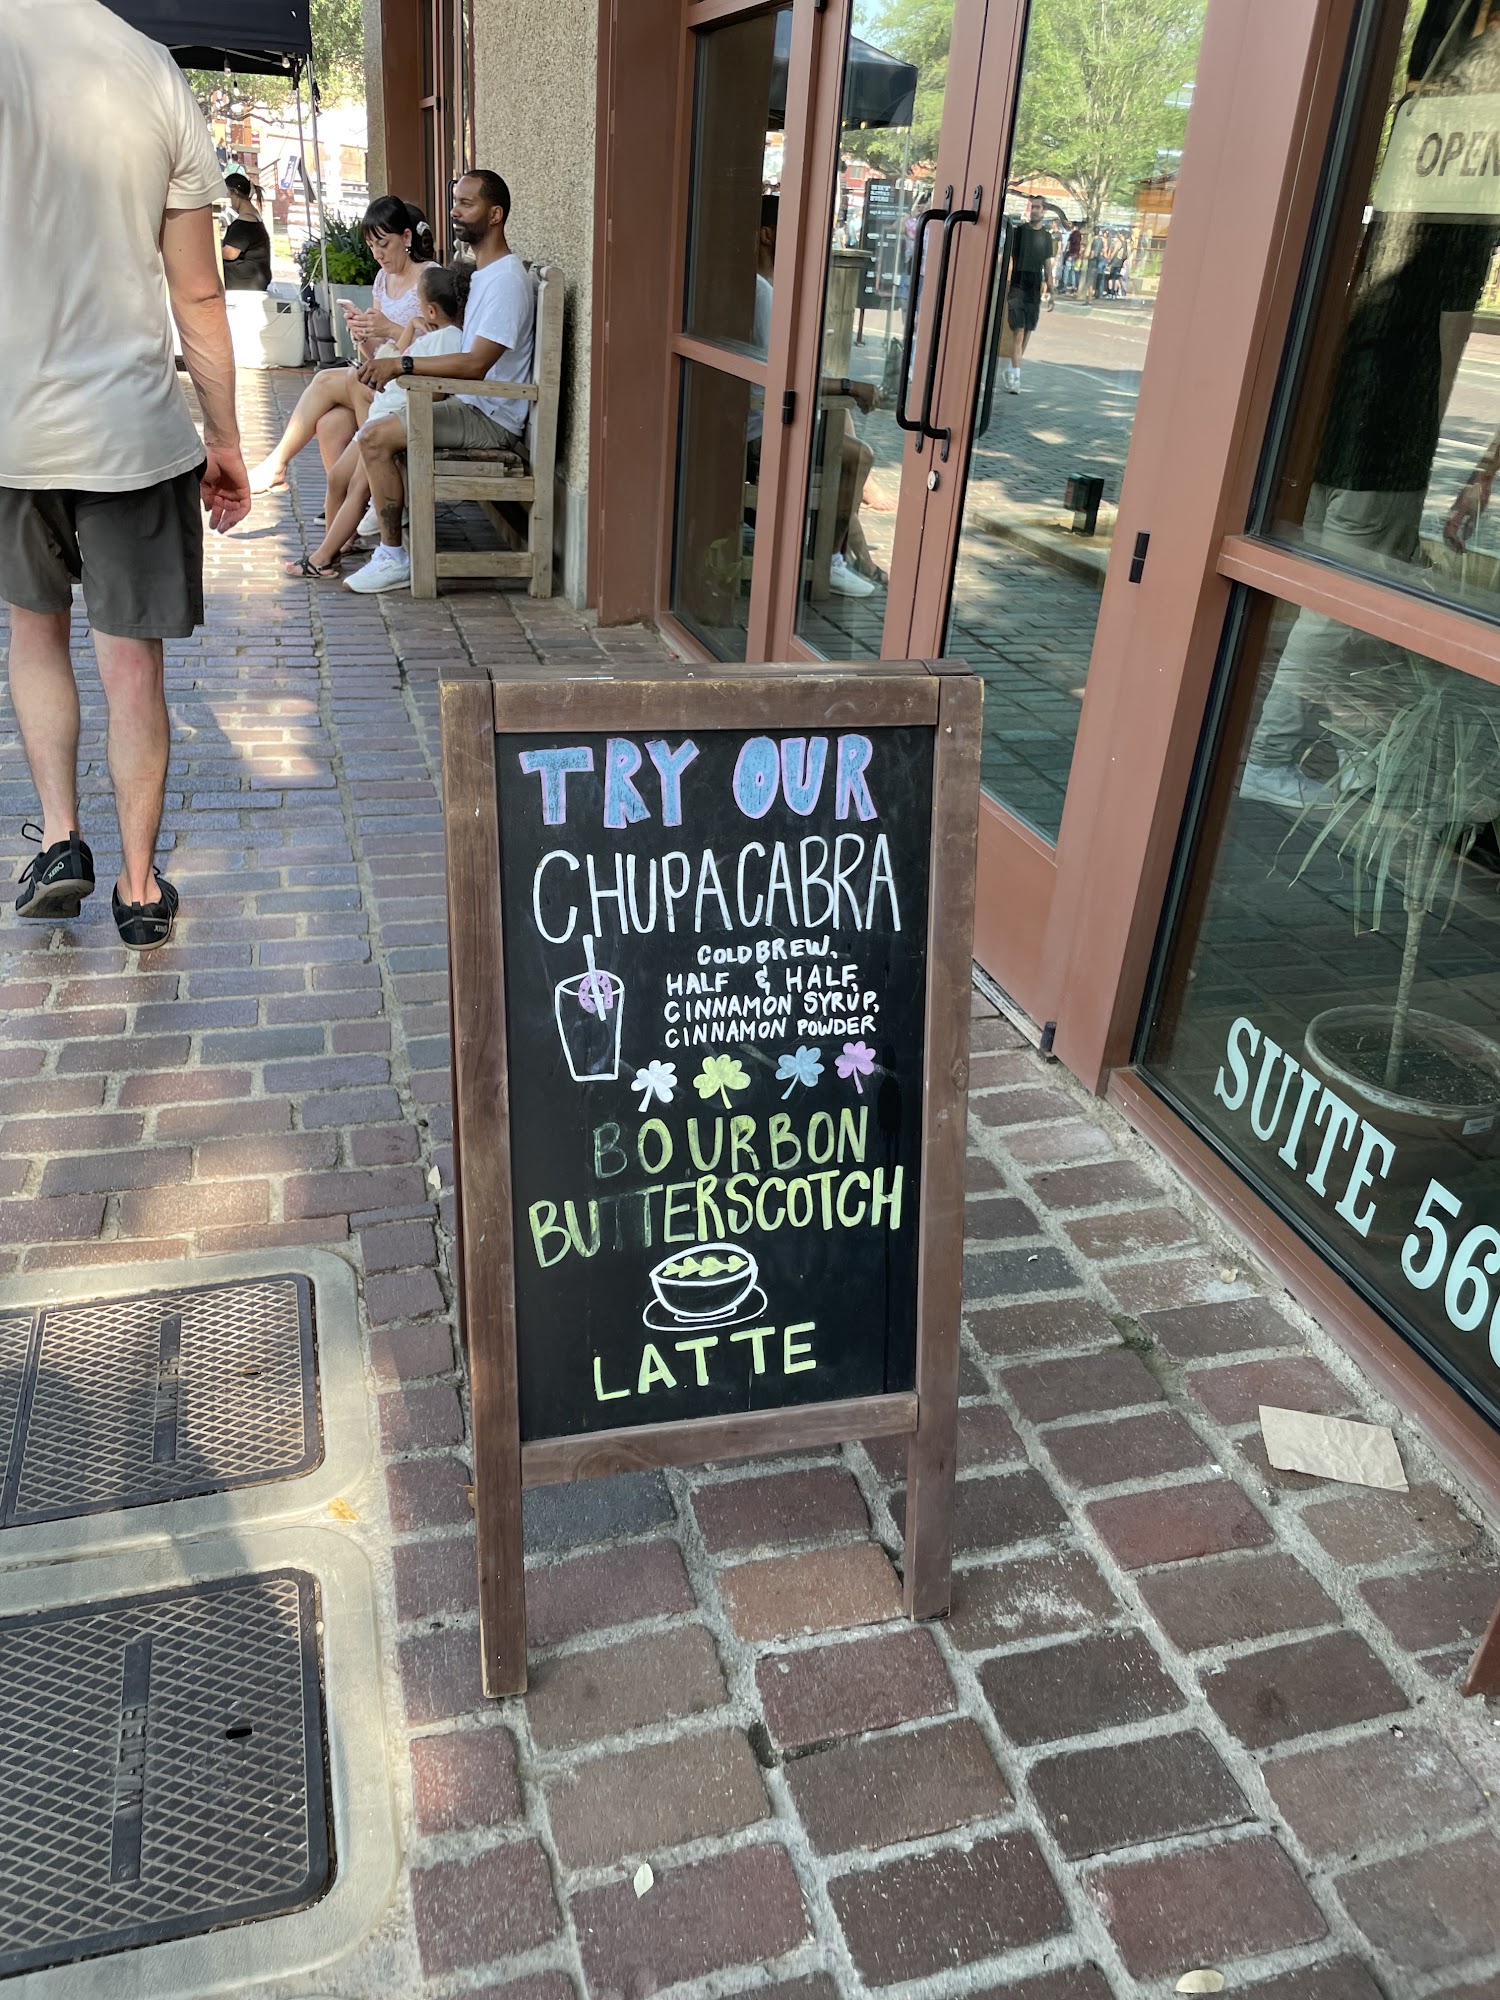 OPEN
TRY OUR
CHUPACABRA
COLD BREW,
HALF & HALF,
CINNAMON SYRUP,
CINNAMON POWDER
BOURBON
BUTTERSCOTCH
LATTE
SUITE 560
WATER
WATER